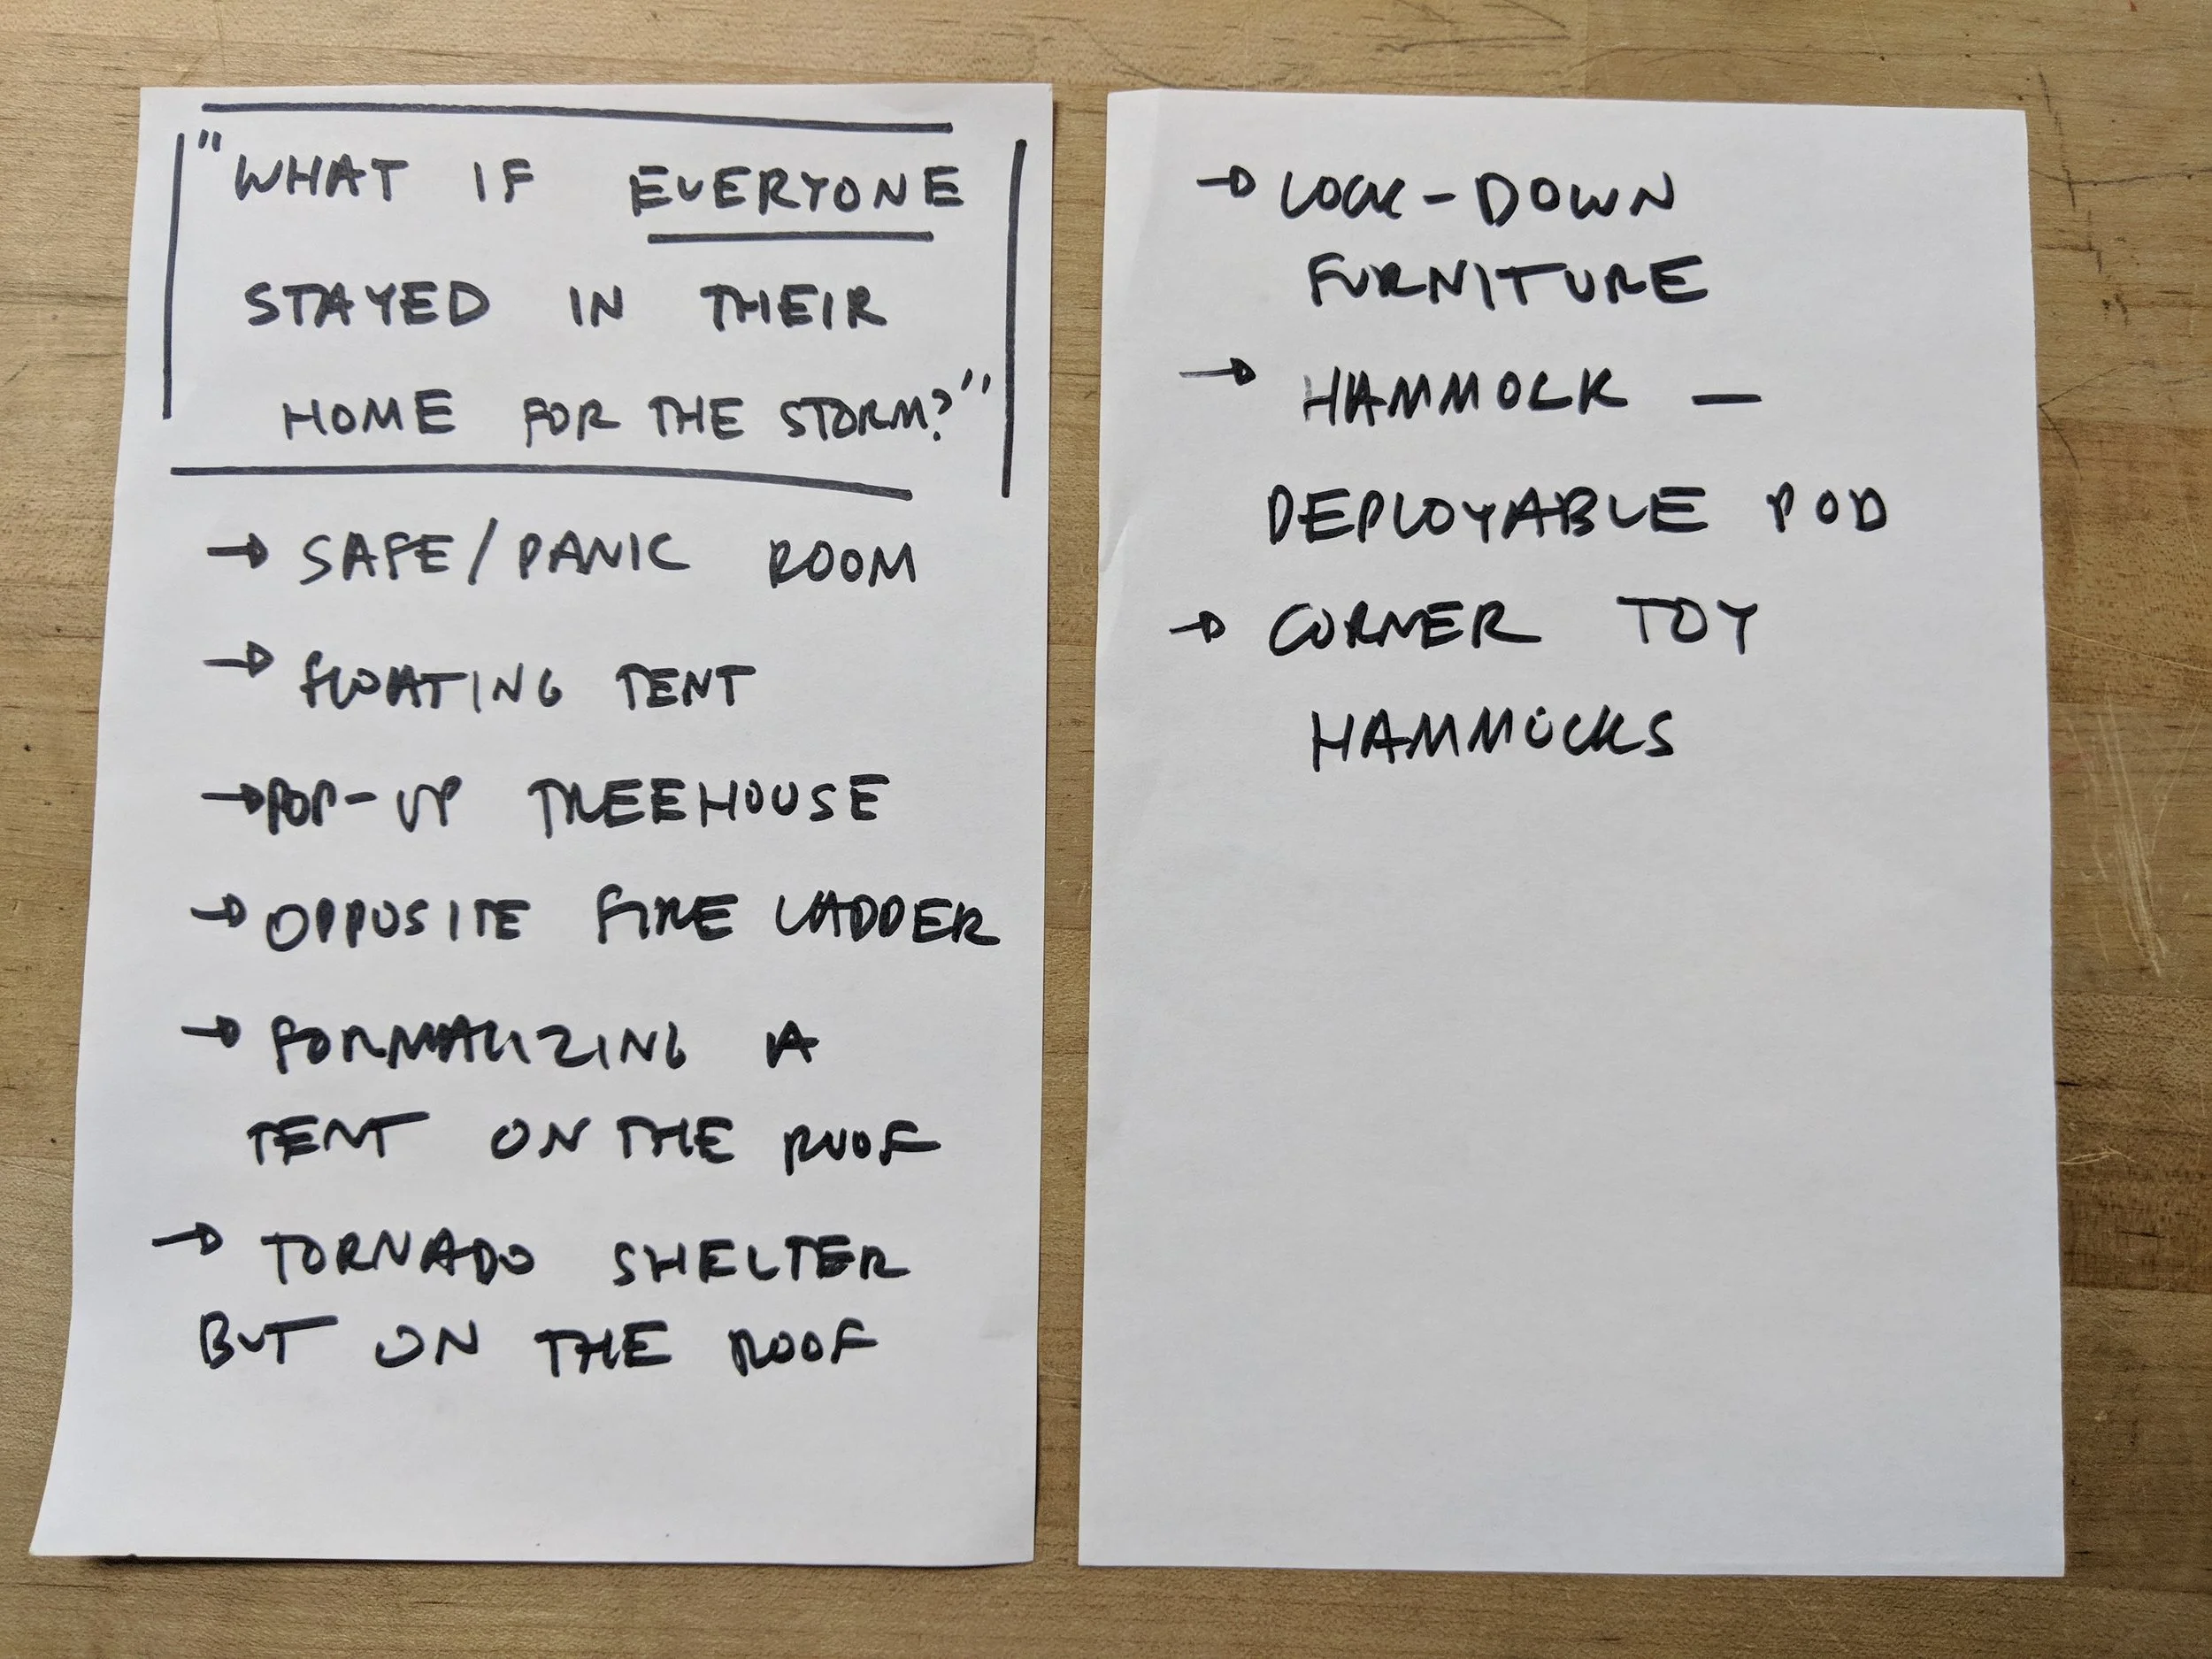 "WHAT IF EVERYONE
STAYED IN THEIR
HOME FOR THE STORM?"
→ SAFE/PANIC ROOM
→ FLOATING TENT
→ POP-UP TREEHOUSE
→ OPPOSITE FIRE LADDER
→ FORMALIZING A
TENT ON THE ROOF
→ TORNADO SHELTER
BUT ON THE ROOF
→ LOCK-DOWN
FURNITURE
→ HAMMOCK —
DEPLOYABLE POD
→ CORNER TOY
HAMMOCKS